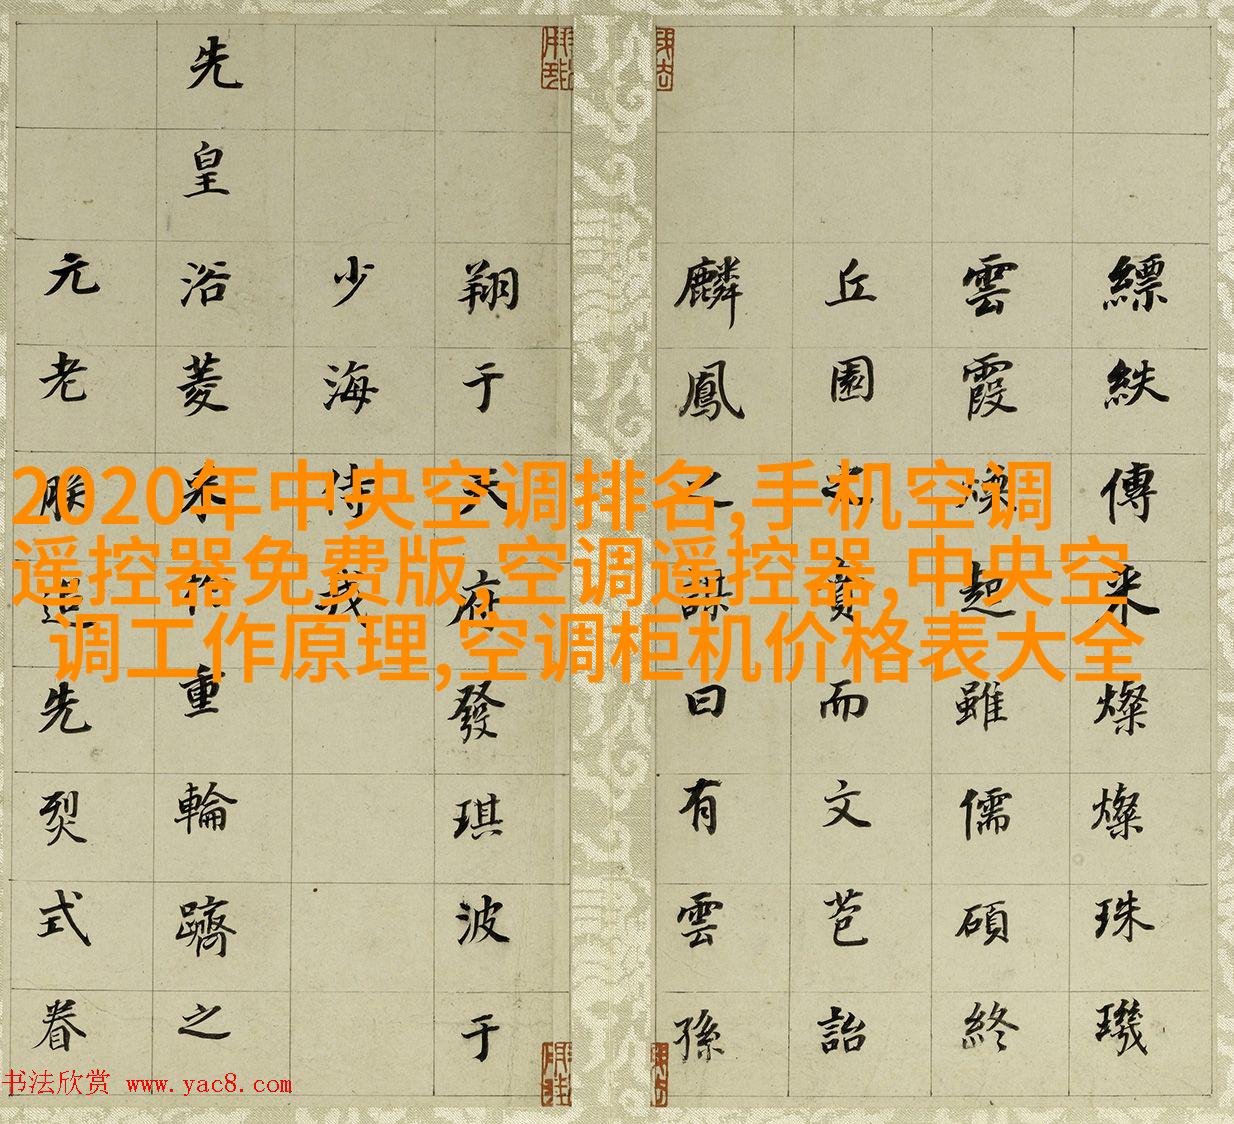 縹紩傳来燦燦珠璣
雲霞燦超雖儒碩終
丘園而文芭詒
麟鳳之謀曰有雲孫
翔于天府發琪波于
少海侍我
先皇浴菱采作重輪躋之
元老先烈式眷
2020年中央空调排名,手机空调
遥控器免费版,空调遥控器,中央空
调工作原理,空调柜机价格表大全
书法欣赏 www.yac8.com